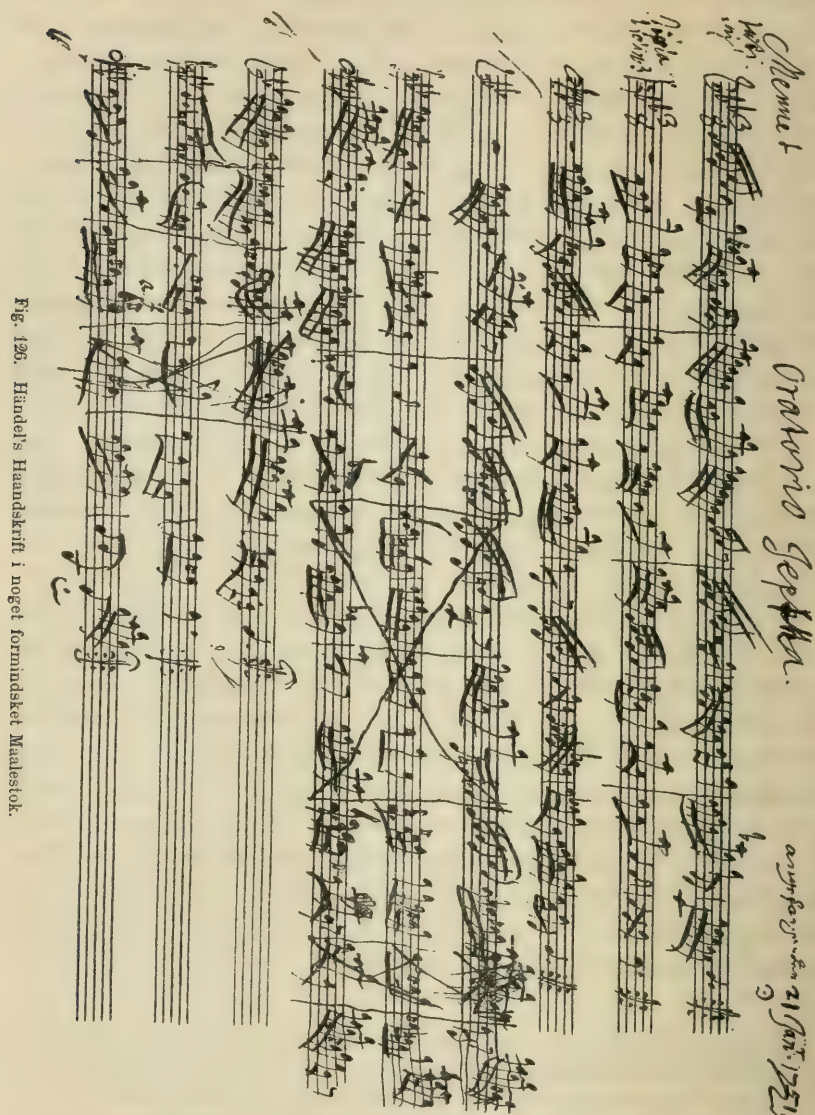 Menuet
Oratorio Jephtha.
angefangen den 21 Jan. 1751
Fig. 126. Händel's Haandskrift i noget formindsket Maalestok.